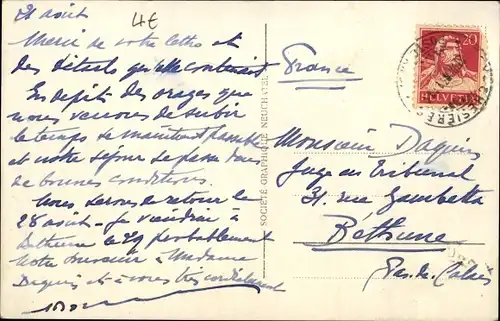 21 août
4€
Merci de votre lettre et
des détails qu'elle contenait
En dépit des orages que
nous venons de subir
le temps se maintient passable
et notre séjour se passe dans
de bonnes conditions.
Nous serons de retour le
28 août - Je viendrai à
Béthune le 29 probablement
Notre souvenir à Madame
Daquin et à vous très cordialement
SOCIÉTÉ GRAPHIQUE NEUCHATEL
20
HELVETIA
France
Monsieur Daquin
Juge au Tribunal
31. rue Gambetta
Béthune
Pas-de-Calais